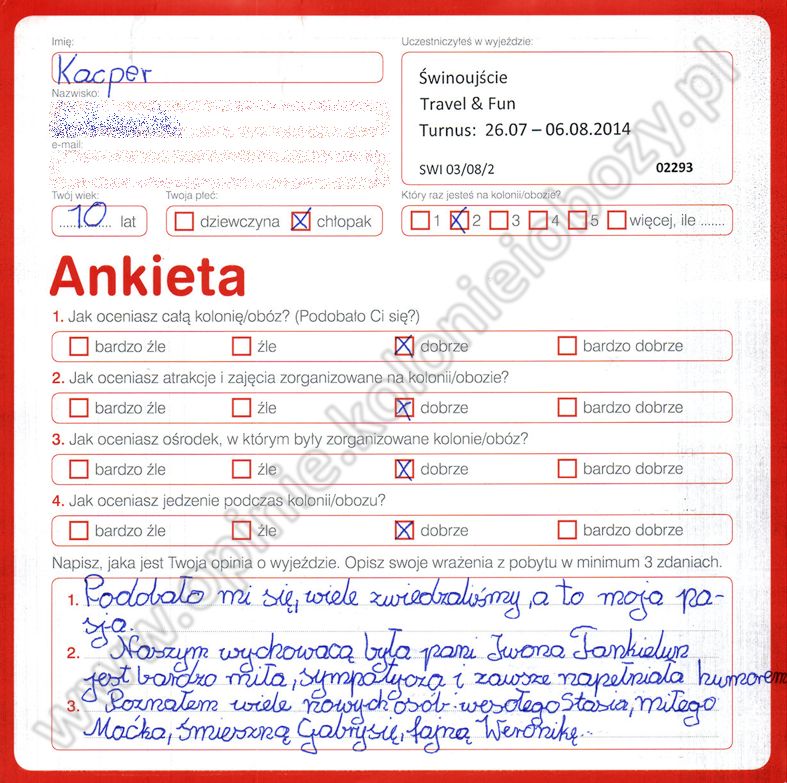 Imię:
Kacper
Nazwisko:
e-mail:
Twój wiek:
10 lat
Twoja płeć:
dziewczyna chłopak
Uczestniczyłeś w wyjeździe:
Świnoujście
Travel & Fun
Turnus: 26.07 – 06.08.2014
SWI 03/08/2 02293
Który raz jesteś na kolonii/obozie?
1 2 3 4 5 więcej, ile .......
Ankieta
1. Jak oceniasz całą kolonię/obóz? (Podobało Ci się?)
bardzo źle źle dobrze bardzo dobrze
2. Jak oceniasz atrakcje i zajęcia zorganizowane na kolonii/obozie?
bardzo źle źle dobrze bardzo dobrze
3. Jak oceniasz ośrodek, w którym były zorganizowane kolonie/obóz?
bardzo źle źle dobrze bardzo dobrze
4. Jak oceniasz jedzenie podczas kolonii/obozu?
bardzo źle źle dobrze bardzo dobrze
Napisz, jaka jest Twoja opinia o wyjeździe. Opisz swoje wrażenia z pobytu w minimum 3 zdaniach.
1. Podobało mi się, wiele zwiedzaliśmy, a to moja pa-
sja.
2. Naszym wychowacą była pani Iwona
jest bardzo miła, sympatyczą i zawsze napełniała humorem
3. Poznałem wiele nowych osób wesołego Stasia, miłego
Maćka, śmieszną Gabrysię, fajną Weronikę..
www.opinie.kolonieiobozy.pl